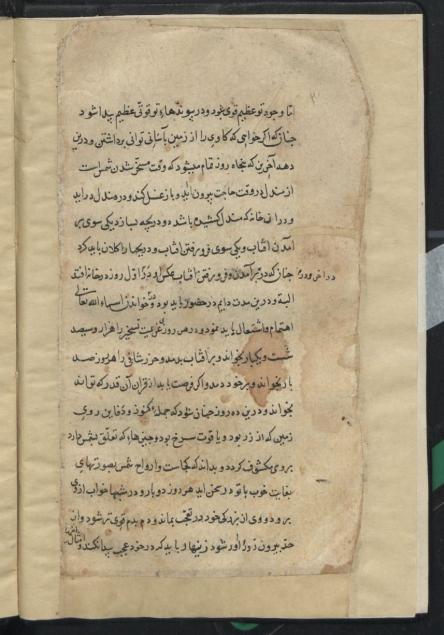 اما وجود تو عظیم قوی شود و در پیوندهاء تو قوتی عظیم پیدا شود
چنانکه اگر خواهی که کاوی را از زمین بآسانی توانی برداشتن و درین
دهه آخرین که پنجاه روز تمام میشود که وقت مسخر شدن شمس است
از مندل در وقت حاجت بیرون آید و باز غسل کند و در مندل در اید
و در آن خانه که مندل کشیده باشد دو دریچه بسازد یکی سوی بر
آمدن افتاب و یکی سوی فرو رفتن افتاب و دریچها را کلان باید کرد
چنانکه در بر آمدن و فرو رفتن افتاب عکس او در اول روز در خانه افتد
و در اخر روز
البته و درین مدت دایم در حضور باید بود و خواندن اسماء الله تعالی
اهتمام و اشتغال باید نمود و در هر روزی عزیمت تسخیر را هزار و سیصد
شصت و یکبار بخواند و بر افتاب بدمد و حرز شافی را هر روز صد
بار بخواند و بر خود دمد و اکر فرصت یابد از قران آن قدر که تواند
بخواند و درین ده روز چنان شود که جمله کنوز و دفاین روی
زمین که از زر بود و یاقوت سرخ بود و چیزهاء که تعلق بشمس دارد
بر وی مکشوف کردد و بداند که کجاست و ارواح شمس بصورتهای
بغایت خوب با تو در سخن اید هر روز دو بار و در شبها خواب از وی
برود و وی از بزرکی خود در تعجب بماند و دم بدم قوی تر شود و از
حد بیرون زور اور شود زینها و باید که در خود عجبی پیدا نکند و